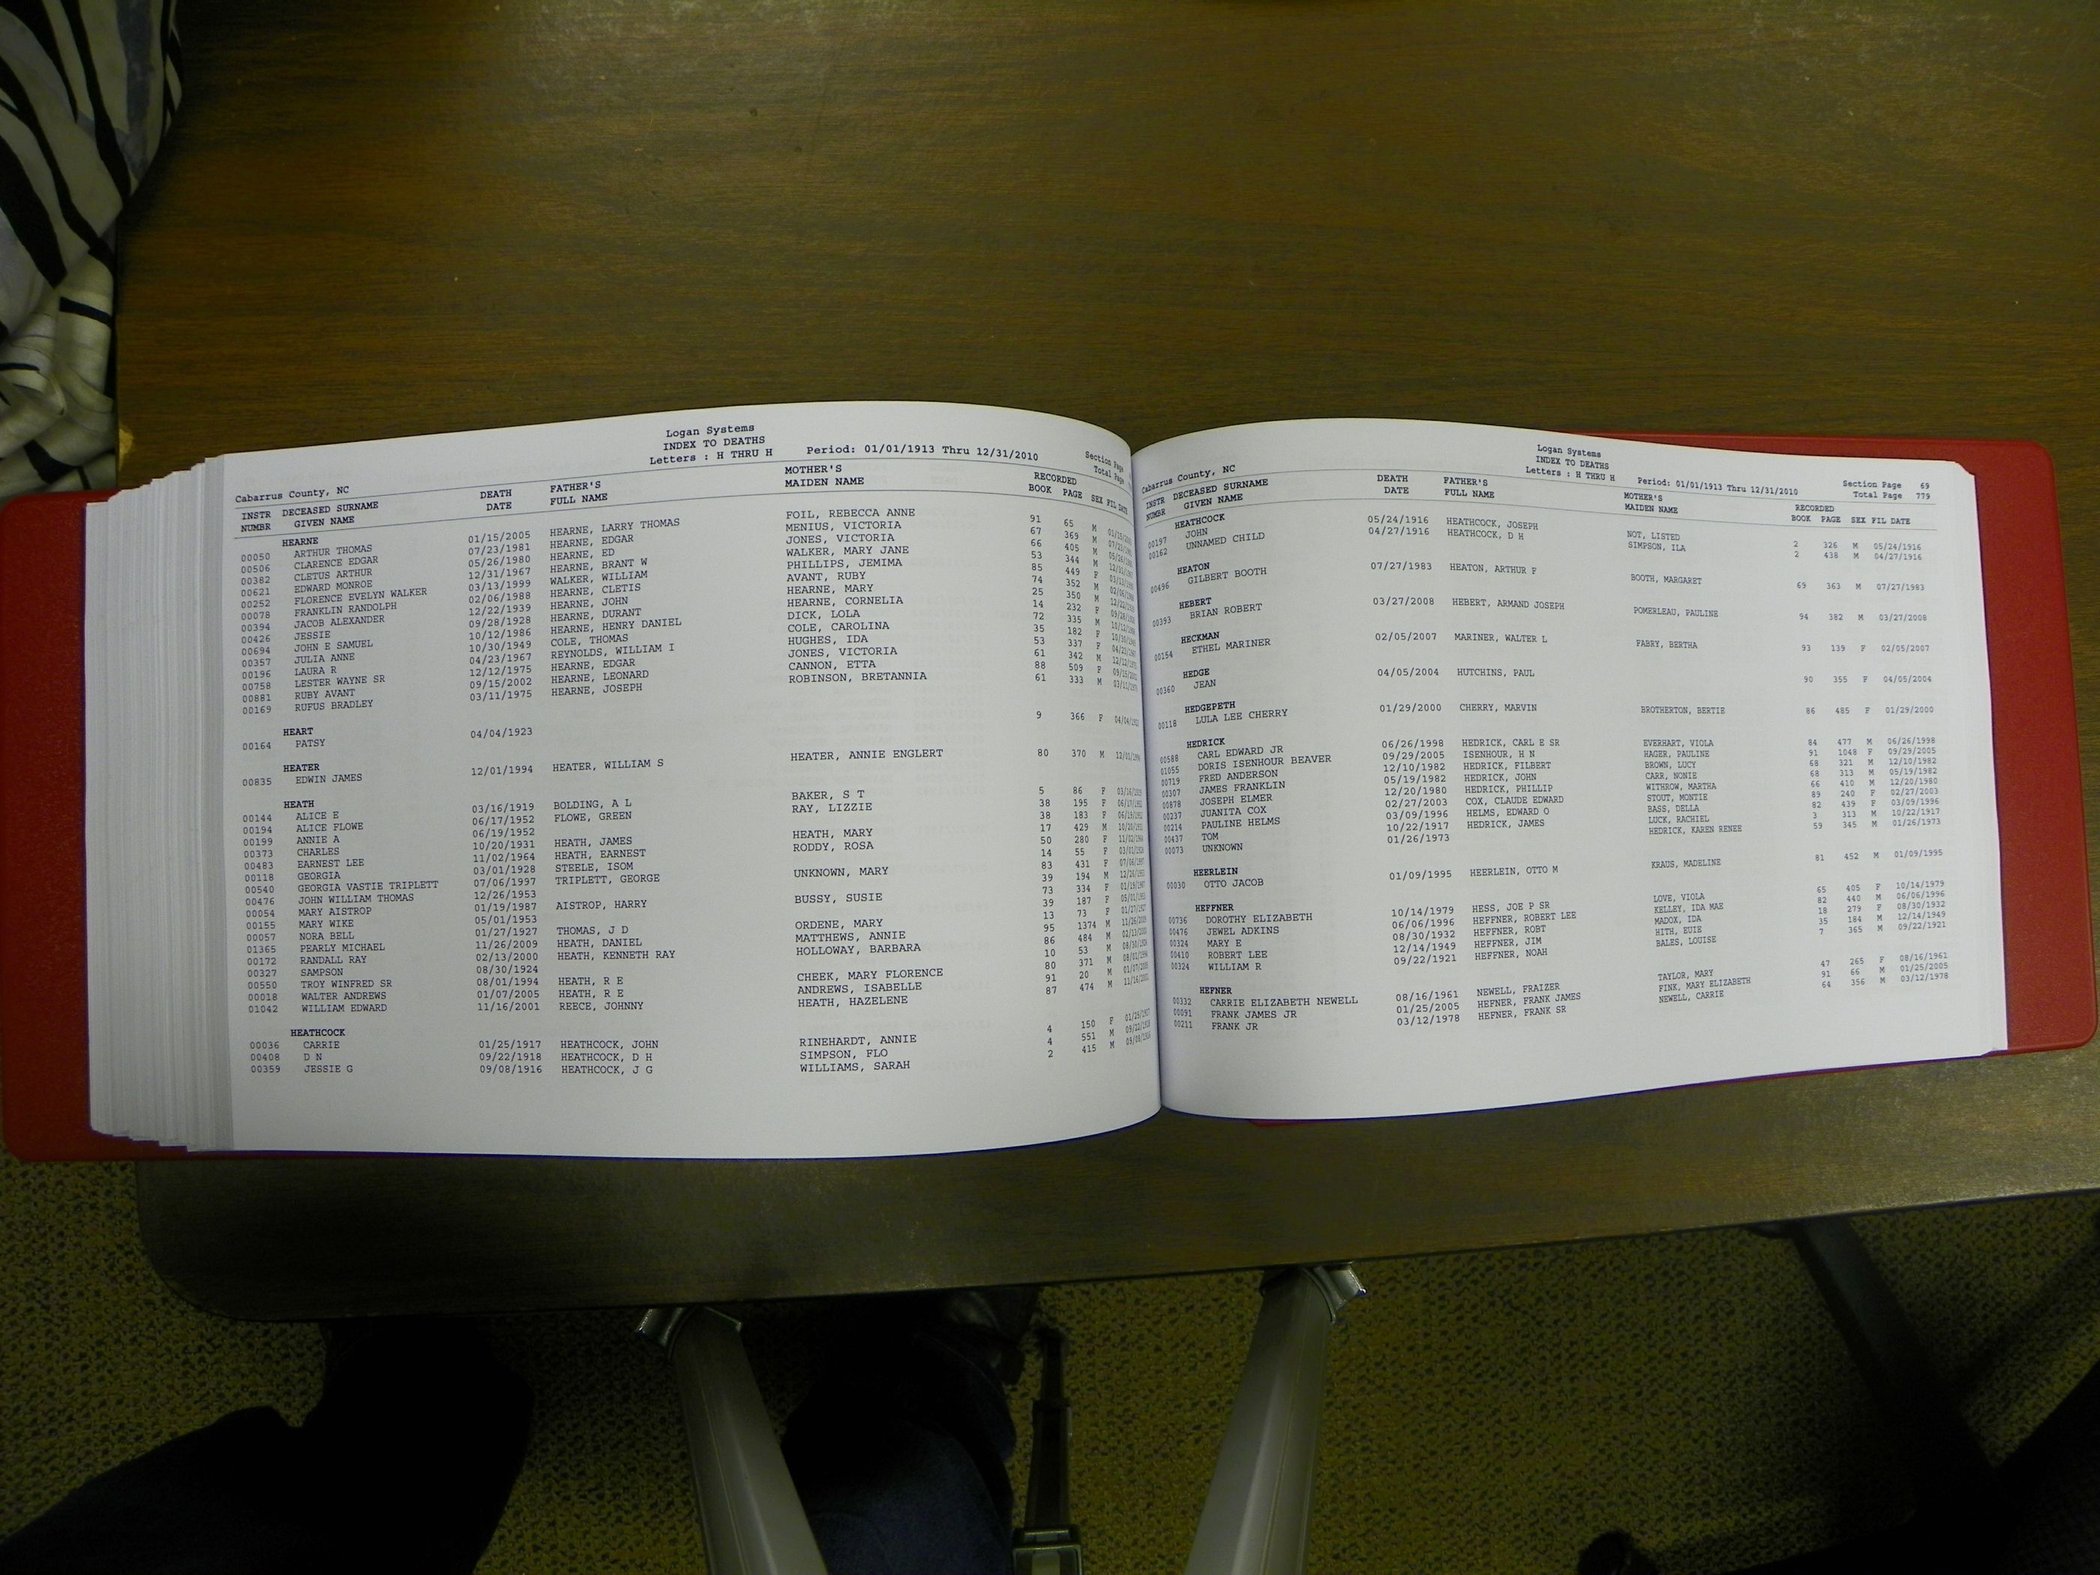 Logan Systems
INDEX TO DEATHS
Cabarrus County, NC Letters : H THRU H Period: 01/01/1913 Thru 12/31/2010 Section Page
Total Page
INSTR DECEASED SURNAME DEATH FATHER'S MOTHER'S RECORDED
NUMBR GIVEN NAME DATE FULL NAME MAIDEN NAME BOOK PAGE SEX FIL DATE
HEARNE
00050 ARTHUR THOMAS 01/15/2005 HEARNE, LARRY THOMAS FOIL, REBECCA ANNE 91 65 M
00506 CLARENCE EDGAR 07/23/1981 HEARNE, EDGAR MENIUS, VICTORIA 67 369 M
00382 CLETUS ARTHUR 05/26/1980 HEARNE, ED JONES, VICTORIA 66 405 M
00621 EDWARD MONROE 12/31/1967 HEARNE, BRANT W WALKER, MARY JANE 53 344 M
00252 FLORENCE EVELYN WALKER 03/13/1999 WALKER, WILLIAM PHILLIPS, JEMIMA 85 449 F
00078 FRANKLIN RANDOLPH 02/06/1988 HEARNE, CLETIS AVANT, RUBY 74 352 M
00394 JACOB ALEXANDER 12/22/1939 HEARNE, JOHN HEARNE, MARY 25 350 M
00426 JESSIE 09/28/1928 HEARNE, DURANT HEARNE, CORNELIA 14 232 F
00694 JOHN E SAMUEL 10/12/1986 HEARNE, HENRY DANIEL DICK, LOLA 72 335 M
00357 JULIA ANNE 10/30/1949 COLE, THOMAS COLE, CAROLINA 35 182 F
00196 LAURA R 04/23/1967 REYNOLDS, WILLIAM I HUGHES, IDA 53 337 F
00758 LESTER WAYNE SR 12/12/1975 HEARNE, EDGAR JONES, VICTORIA 61 342 M
00881 RUBY AVANT 09/15/2002 HEARNE, LEONARD CANNON, ETTA 88 509 F
00169 RUFUS BRADLEY 03/11/1975 HEARNE, JOSEPH ROBINSON, BRETANNIA 61 333 M
HEART
00164 PATSY 04/04/1923 9 366 F
HEATER
00835 EDWIN JAMES 12/01/1994 HEATER, WILLIAM S HEATER, ANNIE ENGLERT 80 370 M
HEATH
00144 ALICE E 03/16/1919 BOLDING, A L BAKER, S T 5 86 F
00194 ALICE FLOWE 06/17/1952 FLOWE, GREEN RAY, LIZZIE 38 195 F
00199 ANNIE A 06/19/1952 38 183 F
00373 CHARLES 10/20/1931 HEATH, JAMES HEATH, MARY 17 429 M
00483 EARNEST LEE 11/02/1964 HEATH, EARNEST RODDY, ROSA 50 280 F
00118 GEORGIA 03/01/1928 STEELE, ISOM 14 55 F
00540 GEORGIA VASTIE TRIPLETT 07/06/1997 TRIPLETT, GEORGE UNKNOWN, MARY 83 431 F
00476 JOHN WILLIAM THOMAS 12/26/1953 39 194 M
00054 MARY AISTROP 01/19/1987 AISTROP, HARRY BUSSY, SUSIE 73 334 F
00155 MARY WIKE 05/01/1953 39 187 F
00057 NORA BELL 01/27/1927 THOMAS, J D ORDENE, MARY 13 73 F
01365 PEARLY MICHAEL 11/26/2009 HEATH, DANIEL MATTHEWS, ANNIE 95 1374 M
00172 RANDALL RAY 02/13/2000 HEATH, KENNETH RAY HOLLOWAY, BARBARA 86 484 M
00327 SAMPSON 08/30/1924 10 53 M
00550 TROY WINFRED SR 08/01/1994 HEATH, R E CHEEK, MARY FLORENCE 80 371 M
00018 WALTER ANDREWS 01/07/2005 HEATH, R E ANDREWS, ISABELLE 91 20 M
01042 WILLIAM EDWARD 11/16/2001 REECE, JOHNNY HEATH, HAZELENE 87 474 M
HEATHCOCK
00036 CARRIE 01/25/1917 HEATHCOCK, JOHN RINEHARDT, ANNIE 4 150 F
00408 D N 09/22/1918 HEATHCOCK, D H SIMPSON, FLO 4 551 M
00359 JESSIE G 09/08/1916 HEATHCOCK, J G WILLIAMS, SARAH 2 415 M
Logan Systems
INDEX TO DEATHS
Cabarrus County, NC Letters : H THRU H Period: 01/01/1913 Thru 12/31/2010 Section Page 69
Total Page 779
INSTR DECEASED SURNAME DEATH FATHER'S MOTHER'S RECORDED
NUMBR GIVEN NAME DATE FULL NAME MAIDEN NAME BOOK PAGE SEX FIL DATE
HEATHCOCK
00197 JOHN 05/24/1916 HEATHCOCK, JOSEPH NOT, LISTED 2 326 M 05/24/1916
00162 UNNAMED CHILD 04/27/1916 HEATHCOCK, D H SIMPSON, ILA 2 438 M 04/27/1916
HEATON
00496 GILBERT BOOTH 07/27/1983 HEATON, ARTHUR F BOOTH, MARGARET 69 363 M 07/27/1983
HEBERT
00393 BRIAN ROBERT 03/27/2008 HEBERT, ARMAND JOSEPH POMERLEAU, PAULINE 94 382 M 03/27/2008
HECKMAN
00154 ETHEL MARINER 02/05/2007 MARINER, WALTER L FABRY, BERTHA 93 139 F 02/05/2007
HEDGE
00360 JEAN 04/05/2004 HUTCHINS, PAUL 90 355 F 04/05/2004
HEDGEPETH
00118 LULA LEE CHERRY 01/29/2000 CHERRY, MARVIN BROTHERTON, BERTIE 86 485 F 01/29/2000
HEDRICK
00588 CARL EDWARD JR 06/26/1998 HEDRICK, CARL E SR EVERHART, VIOLA 84 477 M 06/26/1998
01055 DORIS ISENHOUR BEAVER 09/29/2005 ISENHOUR, H N HAGER, PAULINE 91 1048 F 09/29/2005
00719 FRED ANDERSON 12/10/1982 HEDRICK, FILBERT BROWN, LUCY 68 321 M 12/10/1982
00307 JAMES FRANKLIN 05/19/1982 HEDRICK, JOHN CARR, NONIE 68 313 M 05/19/1982
00878 JOSEPH ELMER 12/20/1980 HEDRICK, PHILLIP WITHROW, MARTHA 66 410 M 12/20/1980
00237 JUANITA COX 02/27/2003 COX, CLAUDE EDWARD STOUT, MONTIE 89 240 F 02/27/2003
00214 PAULINE HELMS 03/09/1996 HELMS, EDWARD O BASS, DELLA 82 439 F 03/09/1996
00437 TOM 10/22/1917 HEDRICK, JAMES LUCK, RACHIEL 3 313 M 10/22/1917
00073 UNKNOWN 01/26/1973 HEDRICK, KAREN RENEE 59 345 M 01/26/1973
HEERLEIN
00030 OTTO JACOB 01/09/1995 HEERLEIN, OTTO M KRAUS, MADELINE 81 452 M 01/09/1995
HEFFNER
00736 DOROTHY ELIZABETH 10/14/1979 HESS, JOE P SR LOVE, VIOLA 65 405 F 10/14/1979
00476 JEWEL ADKINS 06/06/1996 HEFFNER, ROBERT LEE KELLEY, IDA MAE 82 440 M 06/06/1996
00324 MARY E 08/30/1932 HEFFNER, ROBT MADOX, IDA 18 279 F 08/30/1932
00410 ROBERT LEE 12/14/1949 HEFFNER, JIM HITH, EUIE 35 184 M 12/14/1949
00324 WILLIAM R 09/22/1921 HEFFNER, NOAH BALES, LOUISE 7 365 M 09/22/1921
HEFNER
00332 CARRIE ELIZABETH NEWELL 08/16/1961 NEWELL, FRAIZER TAYLOR, MARY 47 265 F 08/16/1961
00091 FRANK JAMES JR 01/25/2005 HEFNER, FRANK JAMES FINK, MARY ELIZABETH 91 66 M 01/25/2005
00211 FRANK JR 03/12/1978 HEFNER, FRANK SR NEWELL, CARRIE 64 356 M 03/12/1978